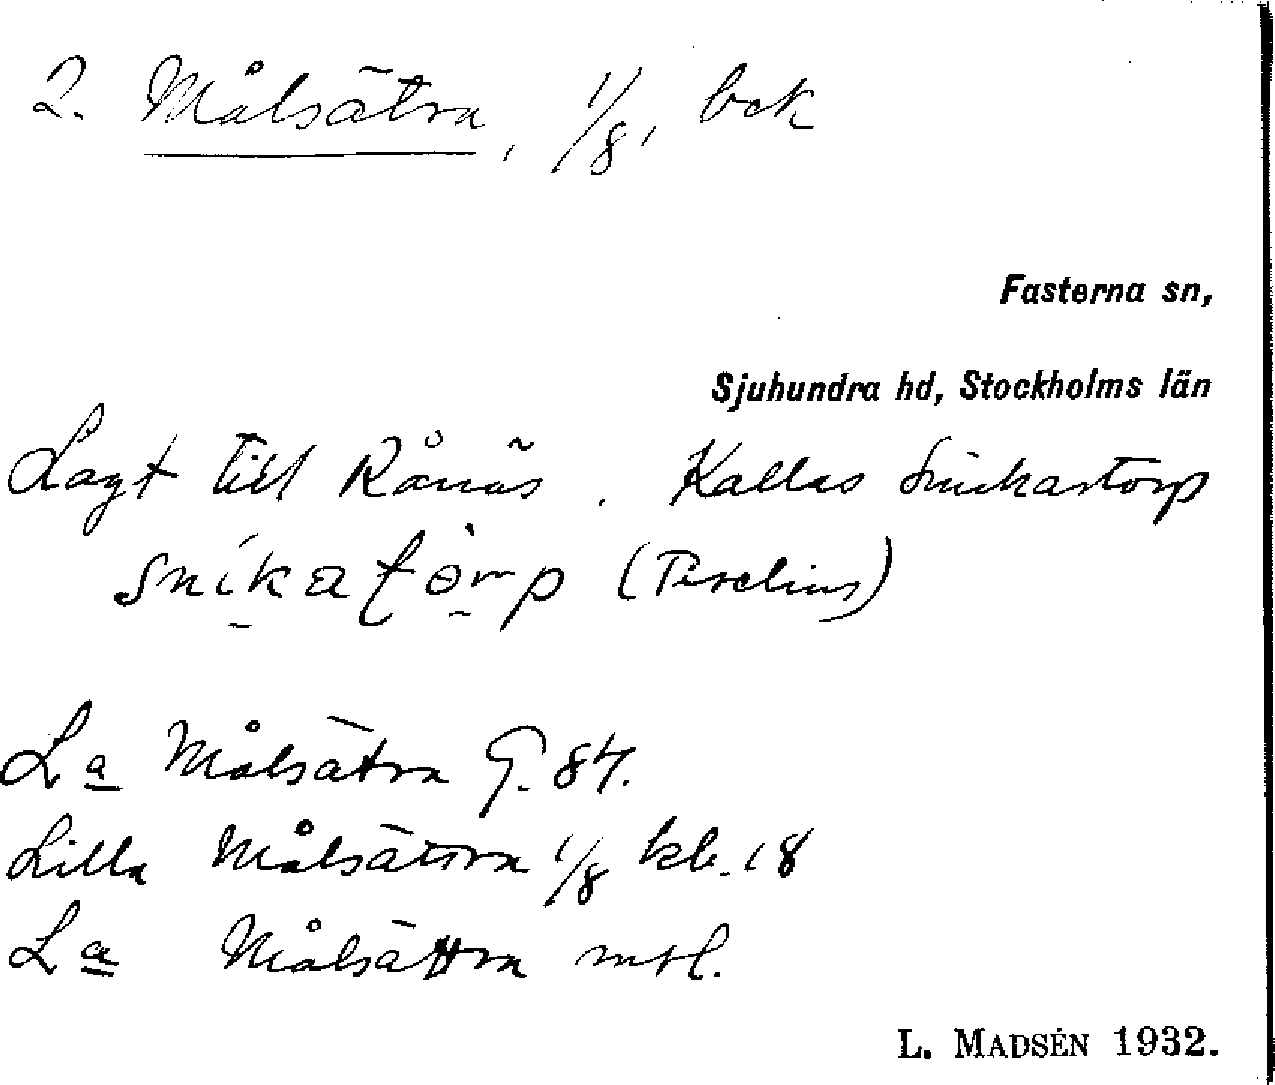 2. Målsätra, 1/8, bck
Fasterna sn,
Sjuhundra hd, Stockholms län
Lagt till Rånäs. Kallas Snickartorp
snikatòrp (Tiselius)
La Målsätra G. 84.
Lilla Målsättra 1/8 kb. 18
La Målsättra mtl.
L. MADSÉN 1932.